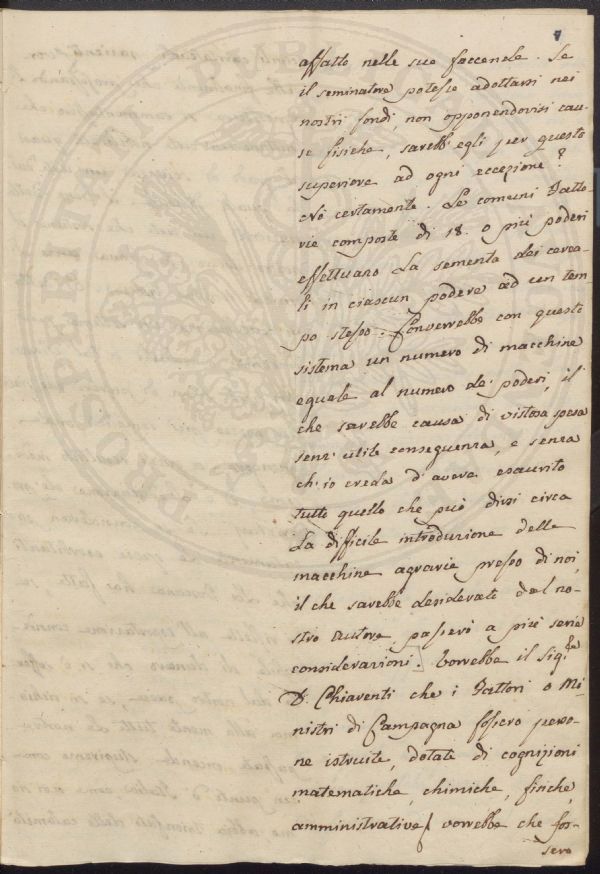 affatto nelle sue faccende. Se
il seminatore potesse adottarsi nei
nostri fondi, non opponendovisi cau-
se fisiche, sarebb'egli per questo
superiore ad ogni eccezione?
Nò certamente. Le comuni Fatto-
rie composte di 18. o più poderi
effettuano la sementa dei cerea-
li in ciascun podere ad un tem-
po stesso. Converrebbe con questo
sistema un numero di macchine
eguale al numero de' poderi, il
che sarebbe causa di vistosa spesa
senz'utile conseguenza, e senza
ch'io creda d'avere esaurito
tutto quello che può dirsi circa
la difficile introduzione delle
macchine agrarie presso di noi,
il che sarebbe desiderato dal no-
stro Autore, passerò a più serie
considerazioni. Vorrebbe il Sig.re
D. Chiaventi che i Fattori o Mi-
nistri di Campagna fossero perso-
ne istruite, dotate di cognizioni
matematiche, chimiche, fisiche,
amministrative, vorrebbe che fos-
sero
PROSPERITATI PUBLICAE